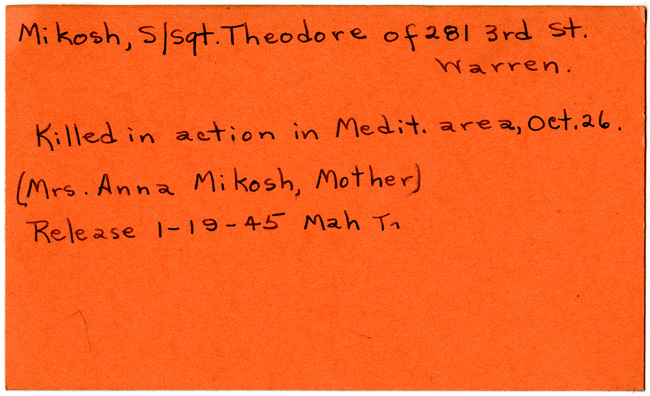 Mikosh, S/Sgt. Theodore of 281 3rd St.
Warren.
Killed in action in Medit. area, Oct. 26.
(Mrs. Anna Mikosh, Mother)
Release 1-19-45 Mah Tr